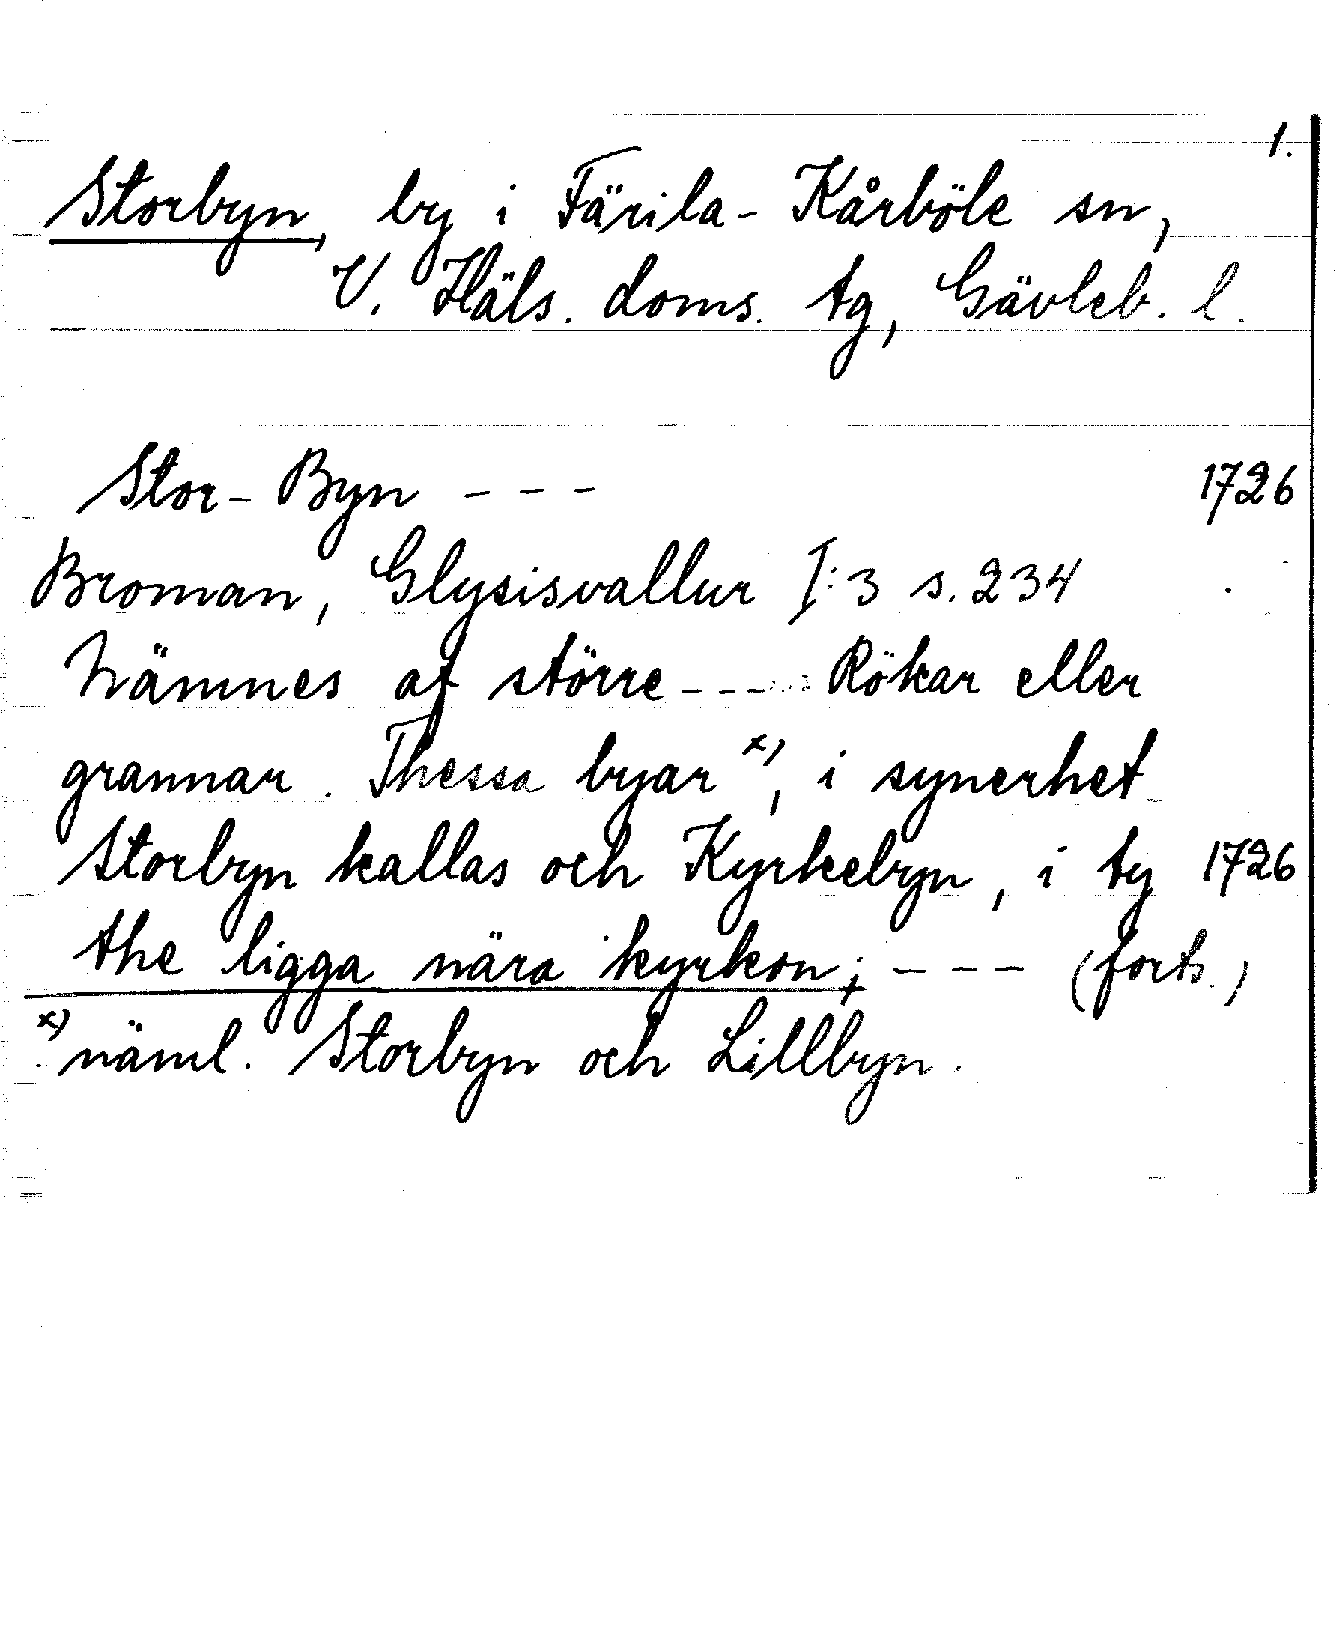 1.
Storbyn, by i Färila-Kårböle sn,
V. Häls. doms. tg, Gävleb. l.
Stor-Byn --- 1726
Broman, Glysisvallur I:3 s. 234
Nämnes af större --- Rökar eller
grannar. Thessa byar x), i synerhet
Storbyn kallas och Kyrkebyn, i ty 1726
the ligga nära kyrkon; --- (forts.)
x) näml. Storbyn och Lillbyn.